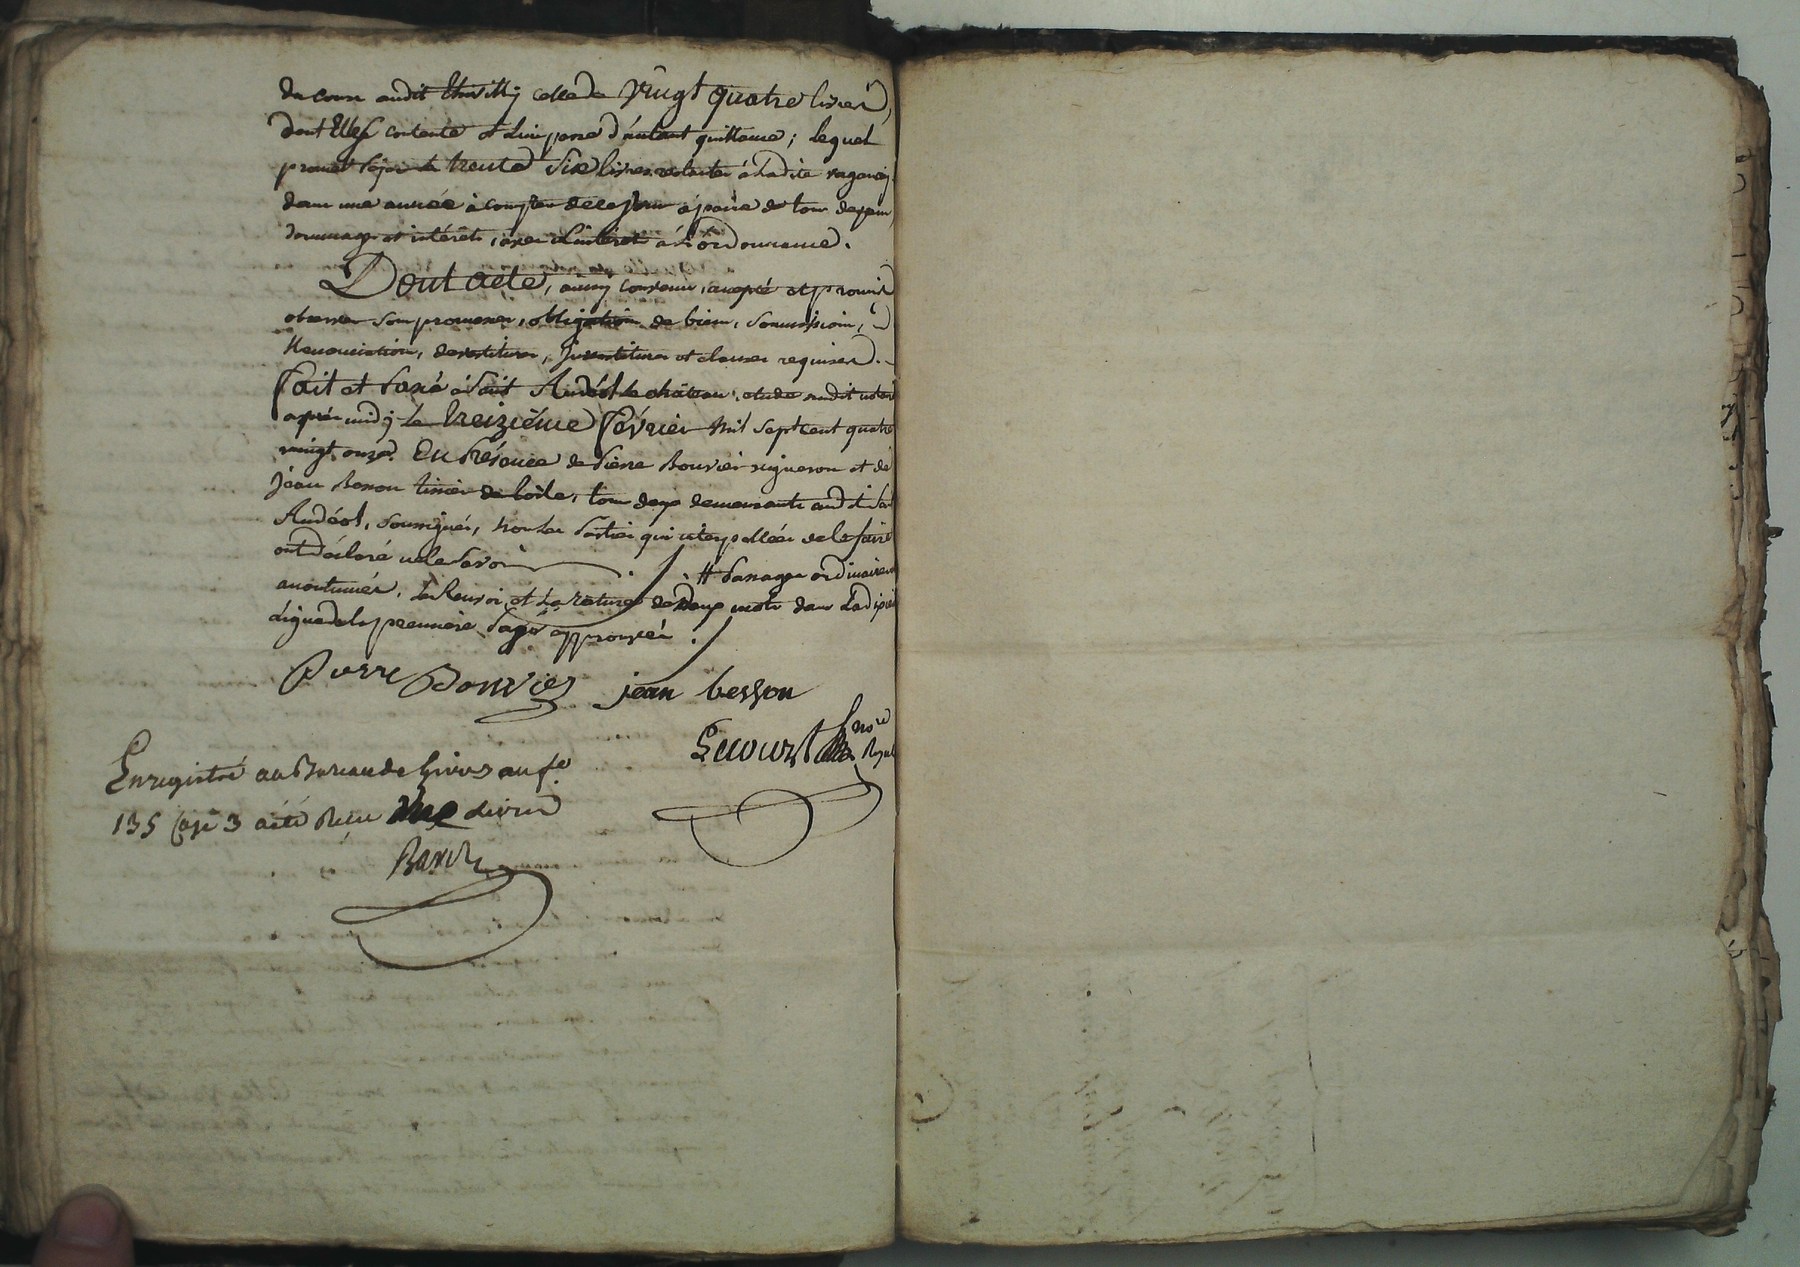 du cours audit Thivilly celle de vingt quatre livres,
dont Elle se contente et lui passe d'autant quittance; lequel
promet payer les trente six livres restantes à ladite
dans une année à compter de ce jour à peine de tous depens,
dommages et intérêts, avec l'intérêt à l'ordonnance.
Dont acte, ainsy convenu, accepté et promis
observer sous promesses, obligation de biens, soumissions,
Renonciation, devestitures, Investitures et clauses requises.
Fait et passé à Saint Andéol le château, etude dudit notaire
après midy le treizième Février mil sept cent quatre
vingt onze. En Présence de Pierre Bouvier vigneron et de
Jean Besson tissier de toile, tous deux demeurants audit St
Andéol, soussignés, non les Parties qui interpellées de le faire
ont déclaré ne le savoir. # Passages ordinaires
accoutumés, le Renvoi et la rature de deux mots dans la
ligne de la premiere Page approuvés.
Pierre Bouvier jean besson
Lecourt nore Royal
Enregistré au Bureau de Givors au fo
135 Case 3 a été Reçu livres